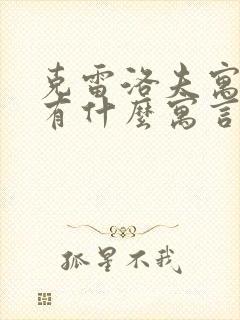 克雷洛夫寓
有什麼寓言
孤星不我